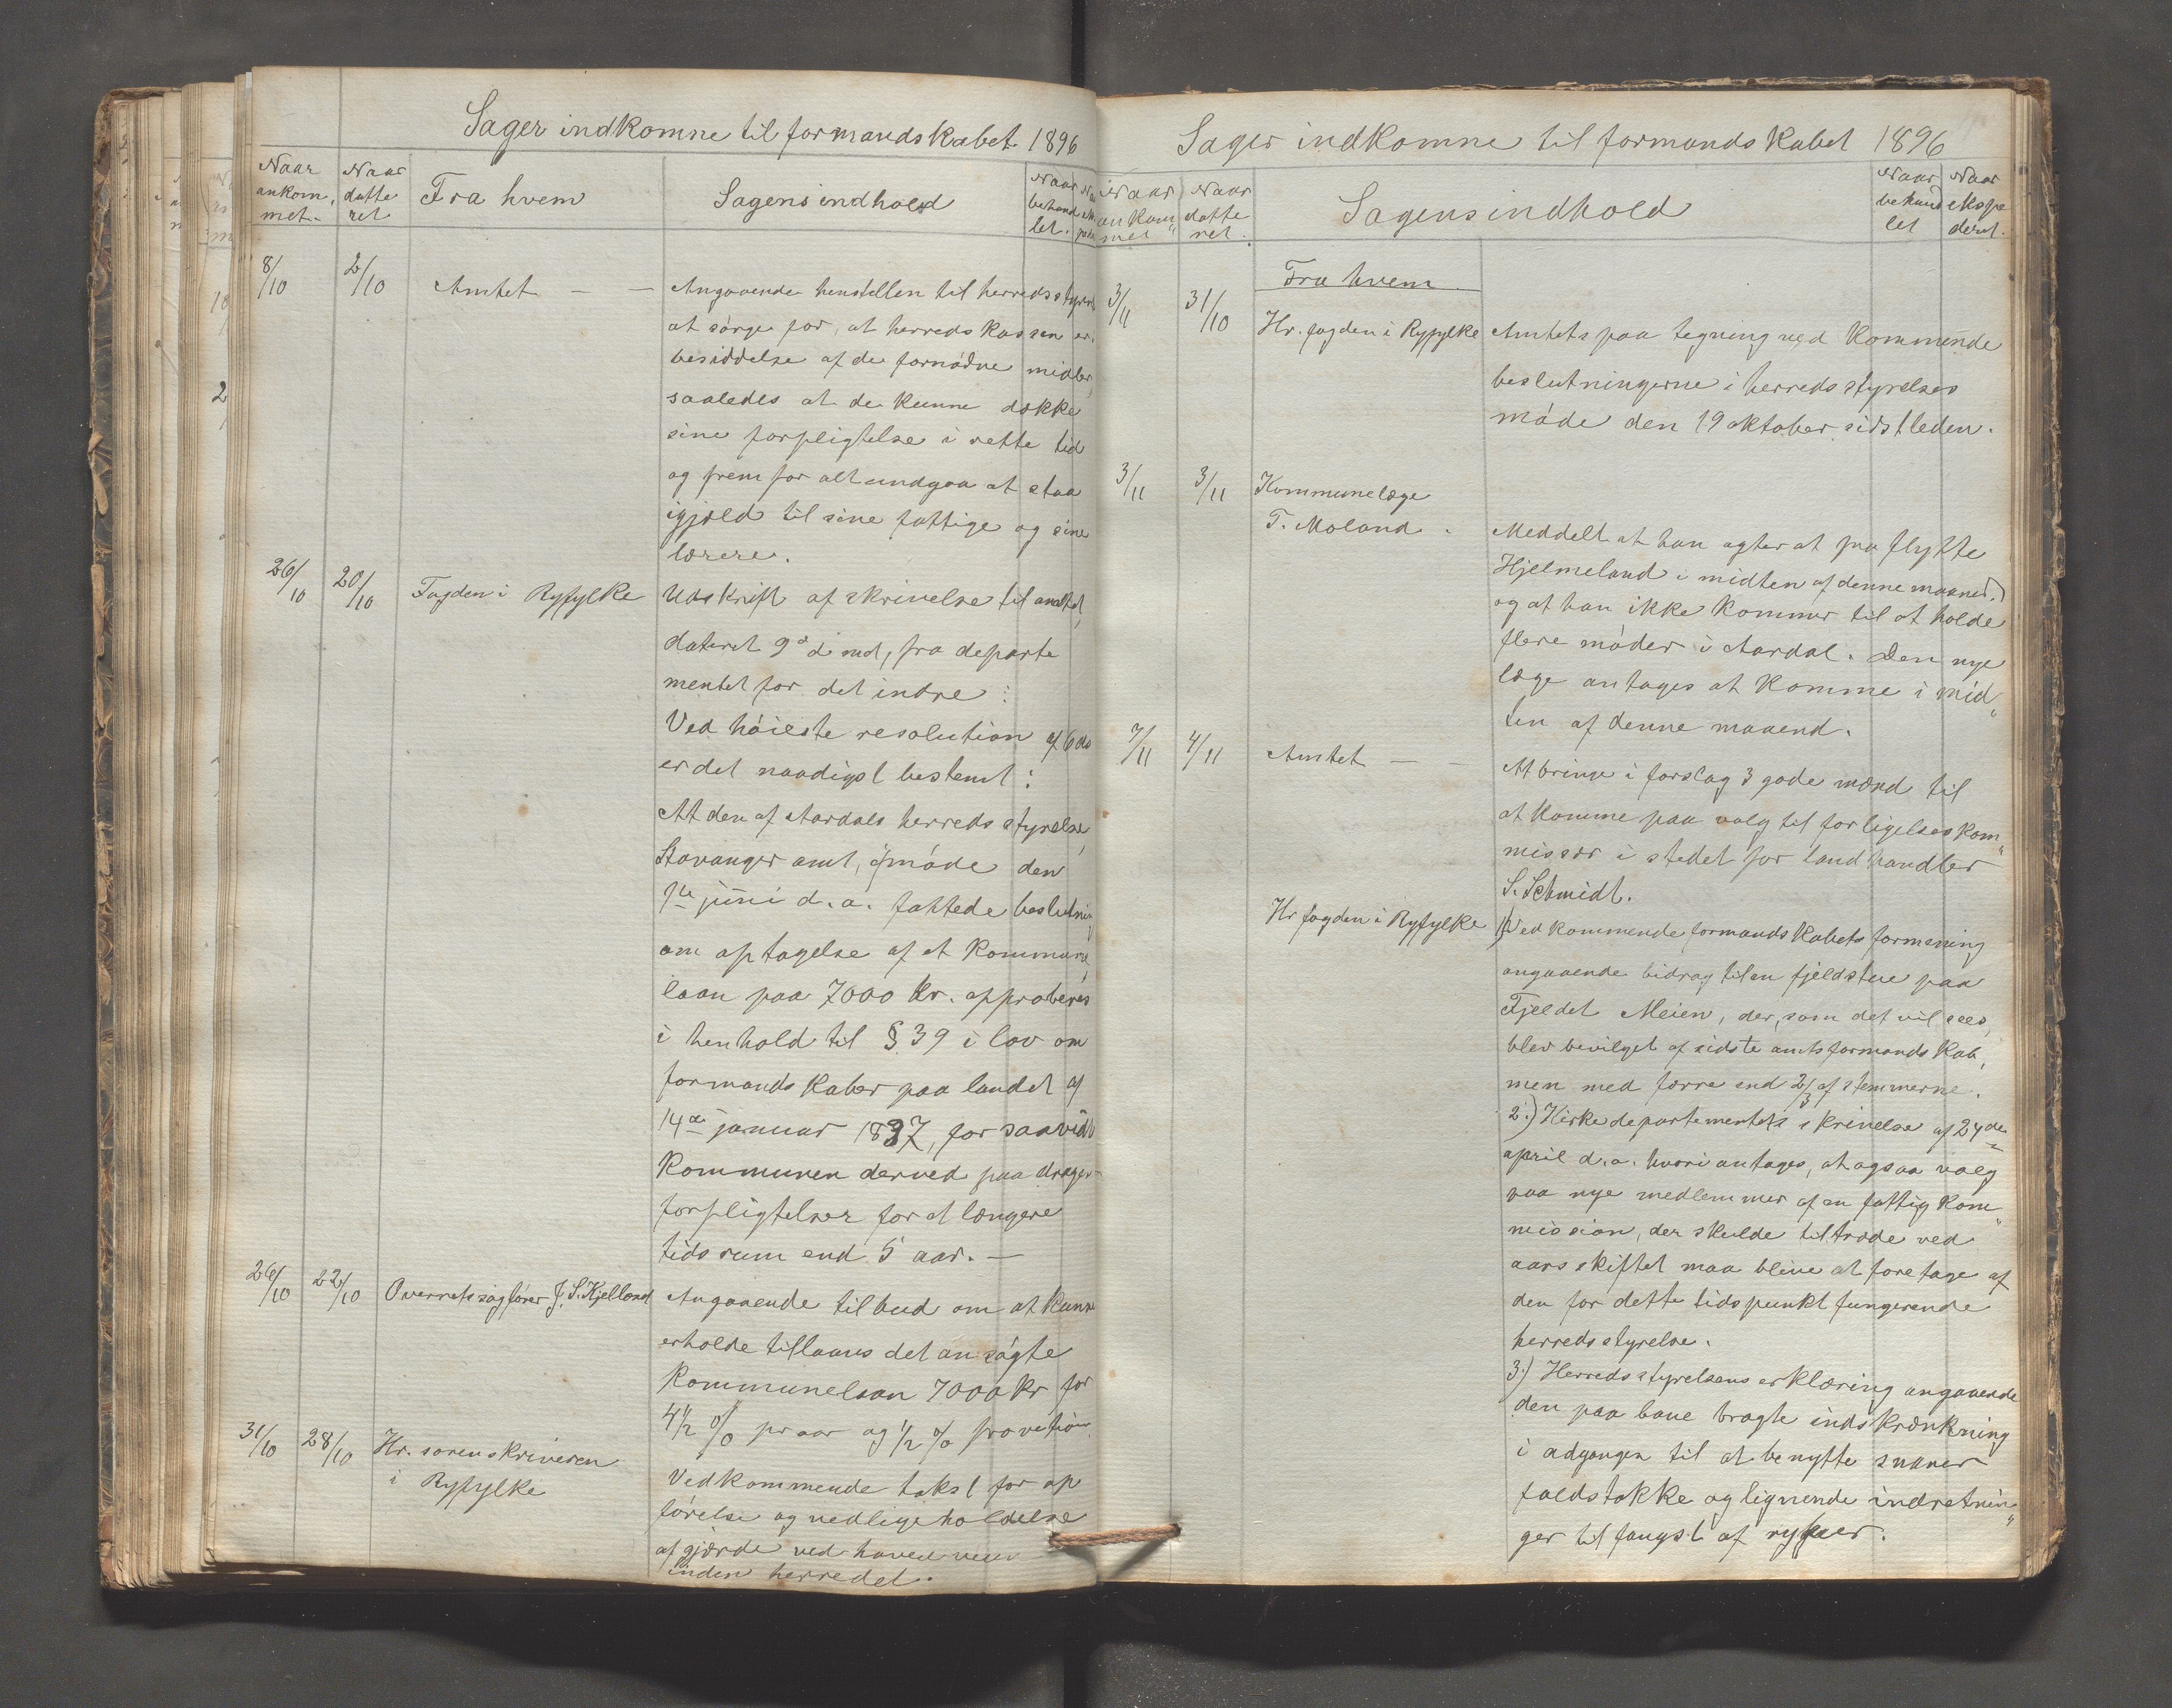 Sager indkomne til formandskabet 1896
Naar ankom, met. Naar datte ret Fra hvem Sagens indhold Naar behand let.
8/10 2/10 Amtet — — Angaaende henstillen til herredsstyrelse
at sørge for, at herredskassen er i
besiddelse af de fornødne midler,
saaledes at de kunne dække
sine forpligtelse i rette tid
og frem for alt undgaa at staa
igjæld til sine fattige og sine
lærere.
26/10 20/10 Fogden i Ryfylke Udskrift af skrivelse til amtet,
dateret 9de d md, fra departe
mentet for det indre:
Ved høieste resolution af 6 ds
er det naadigst bestemt:
At den af Aardals herredsstyrelse,
Stavanger amt, i møde den
1ste juni d. a. fattede beslutning
om optagelse af et kommune,
laan paa 7000 kr. approberes
i henhold til § 39 i lov om
formandskaber paa landet af
14de januar 1837, for saavidt
kommunen derved paadrages
forpligtelser for et længere
tidsrum end 5 aar. —
26/10 22/10 Overretssagfører J. S. Kjelland Angaaende tilbud om at kunne
erholde tillaans det ansøgte
kommunelaan 7000 kr for
4 1/2 % pr aar og 1/2 % provetion
31/10 28/10 Hr. sorenskriveren
i Ryfylke
Vedkommende takst for op
førelse og vedligeholdelse
af gjærde ved hovedveien
inden herredet.
Sager indkomne til formandskabet 1896
Naar ankom" met Naar datte ret. Sagens indhold Naar behand let Naar ekspe deret.
Fra hvem
3/11 31/10 Hr. fogden i Ryfylke Amtets paategning ved kommende
beslutningerne i herredsstyrelses
møde den 19 oktober sidstleden.
3/11 3/11 Kommunelæge
T. Moland.
Meddelt at han agter at fra flytte
Hjelmeland i midten af denne maaned.)
og at han ikke kommer til at holde
flere møder i Aardal. Den nye
læge antages at komme i mid"
ten af denne maaend.
7/11 4/11 Amtet — — At bringe i forslag 3 gode mænd til
at komme paa valg til forligelseskom"
missær i stedet for landhandler
S. Schmidt.
Hr fogden i Ryfylke 1) Ved kommende formandskabets formening
angaaende bidrag til en fjeldstue paa
Fjeldet Meien, der, som det vil sees,
blev bevilget af sidste amtsformandskab,
men med færre end 2/3 af stemmerne.
2.) Kirkedepartementets skrivelse af 24de
april d. a. hvori antages, at ogsaa valg
paa nye medlemmer af en fattigkom"
mission, der skulde tiltræde ved
aarsskiftet maa blive at foretage af
den for dette tidspunkt fungerende
herredsstyrelse.
3.) Herredsstyrelsens erklæring angaaende
den paa bane bragte indskrænkning
i adgangen til at benytte snarer
faldstokke og lignende indretnin"
ger til fangst af ryper.